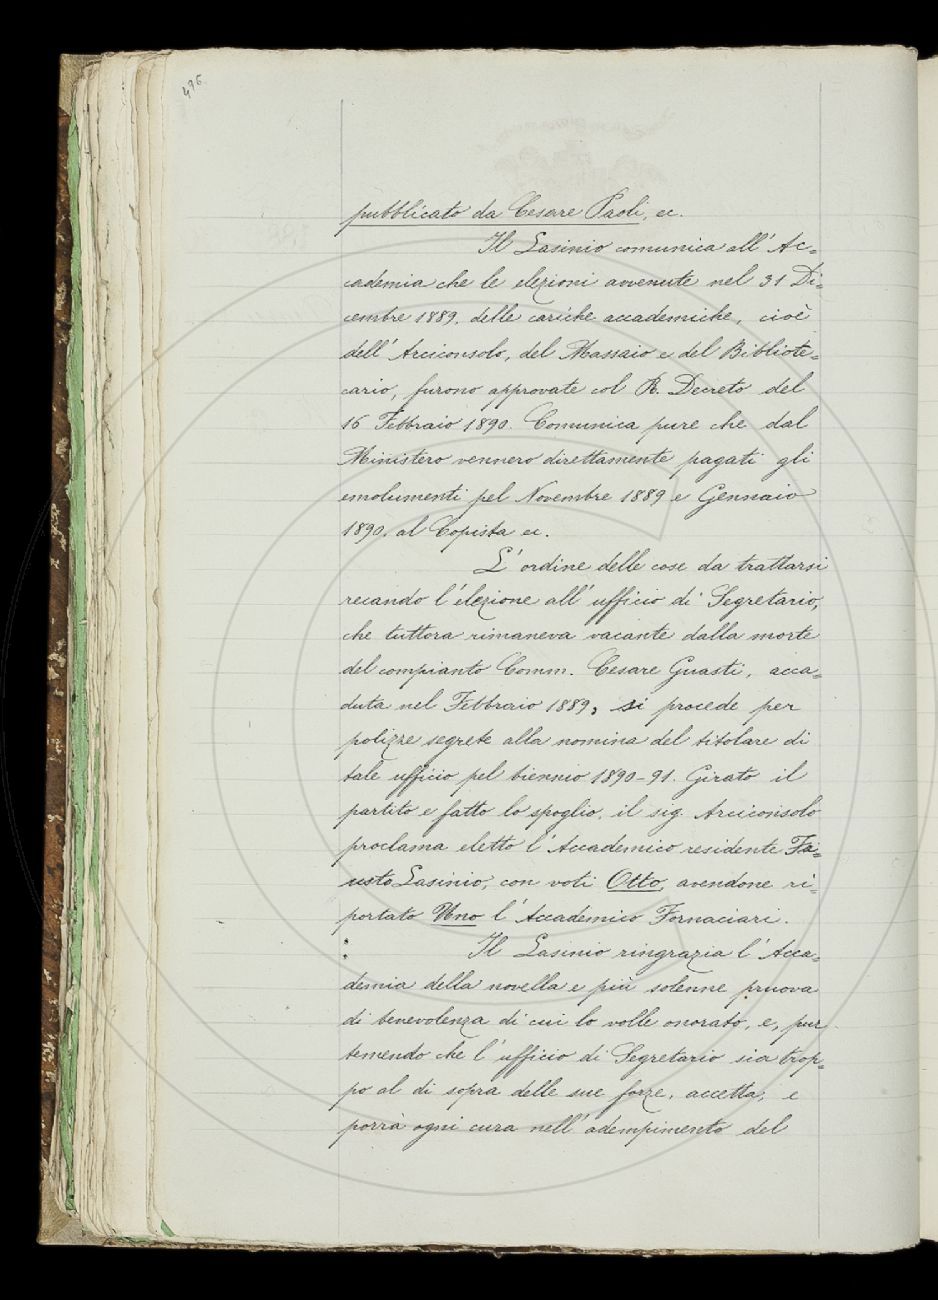 496
pubblicato da Cesare Paoli, ec.
Il Lasinio comunica all' Ac=
cademia che le elezioni avvenute nel 31 Di=
cembre 1889. delle cariche accademiche, cioè
dell' Arciconsolo, del Massaio e del Bibliote=
cario, furono approvate col R. Decreto del
16 Febbraio 1890. Comunica pure che dal
Ministero vennero direttamente pagati gli
emolumenti pel Novembre 1889 e Gennaio
1890. al Copista ec.
L' ordine delle cose da trattarsi
recando l' elezione all' ufficio di Segretario,
che tuttora rimaneva vacante dalla morte
del compianto Comm. Cesare Guasti, acca=
duta nel Febbraio 1889, si procede per
polizze segrete alla nomina del titolare di
tale ufficio pel biennio 1890-91. Girato il
partito e fatto lo spoglio, il sig. Arciconsolo
proclama eletto l' Accademico residente Fa=
usto Lasinio, con voti Otto, avendone ri=
portato Uno l' Accademico Fornaciari.
Il Lasinio ringrazia l' Acca=
demia della novella e più solenne pruova
di benevolenza di cui lo volle onorato, e, pur
temendo che l' ufficio di Segretario sia trop=
po al di sopra delle sue forze, accetta, e
porrà ogni cura nell' adempimento del